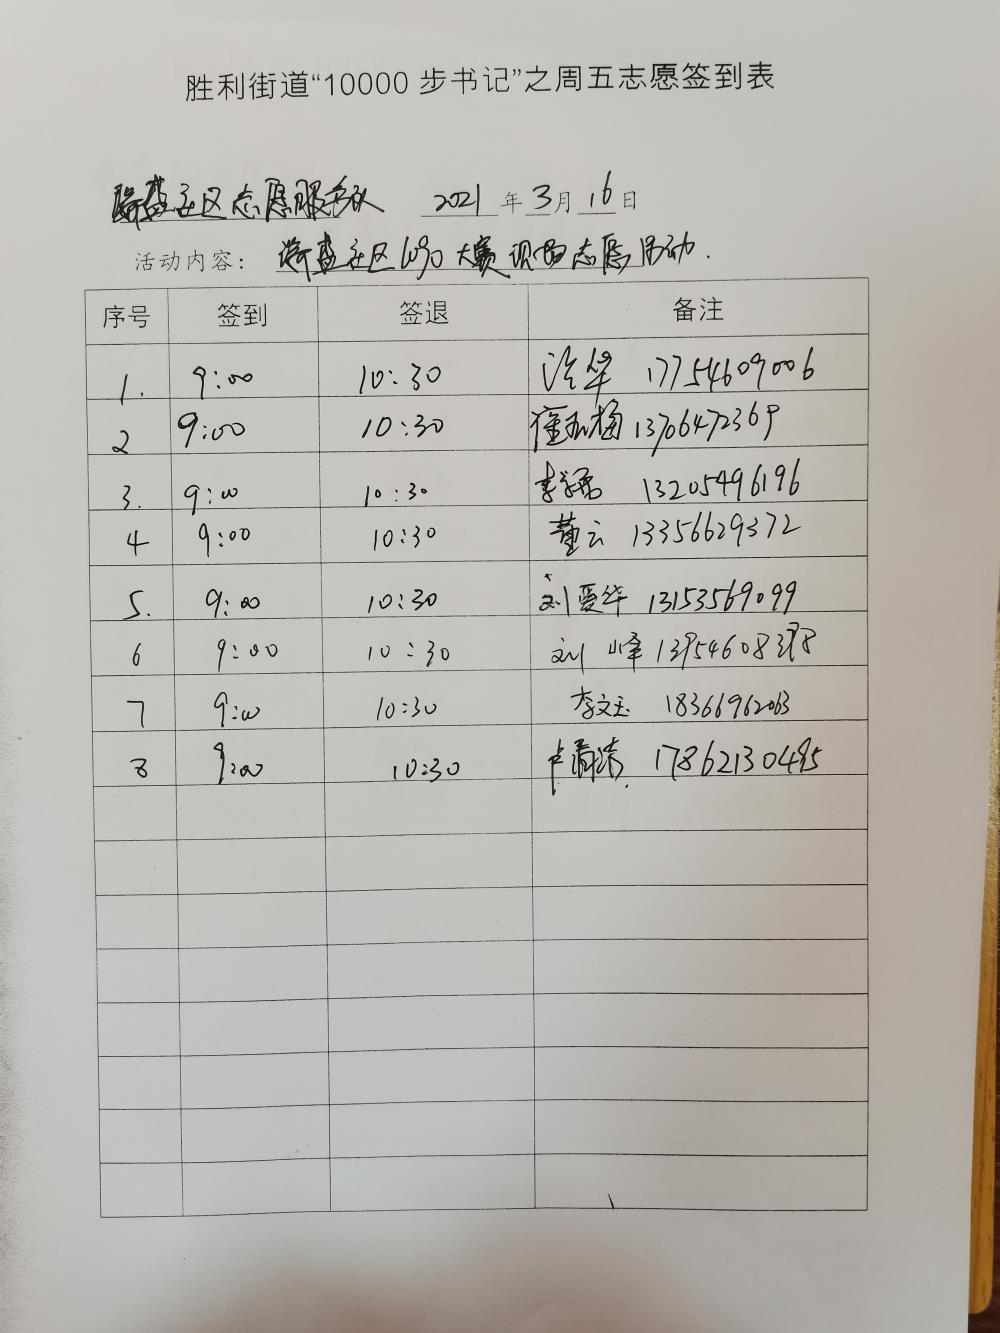 胜利街道“10000 步书记”之周五志愿签到表
社区志愿服务队 2021 年 3 月 16 日
活动内容: 社区 大赛现场志愿活动.
序号 签到 签退 备注
1. 9:00 10:30 华 17754609006
2 9:00 10:30 梅 13706472369
3. 9:00 10:30 李 13205496196
4 9:00 10:30 董云 13356629372
5. 9:00 10:30 刘爱华 13153569099
6 9:00 10:30 刘峰
7 9:00 10:30 李文玉 18366962063
8 9:00 10:30 卢 17862130495